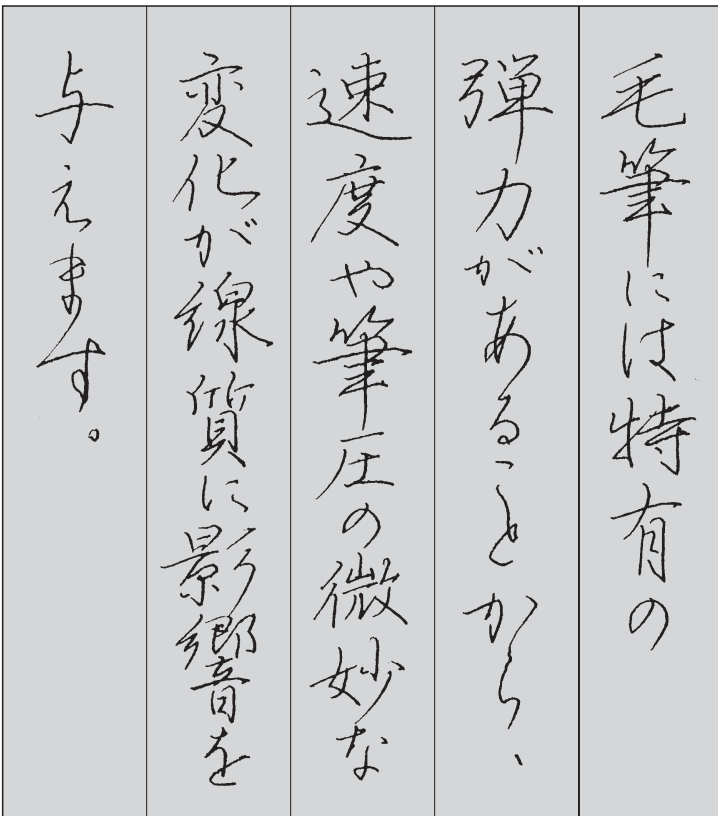 毛筆には特有の
弾力があることから、
速度や筆圧の微妙な
変化が線質に影響を
与えます。